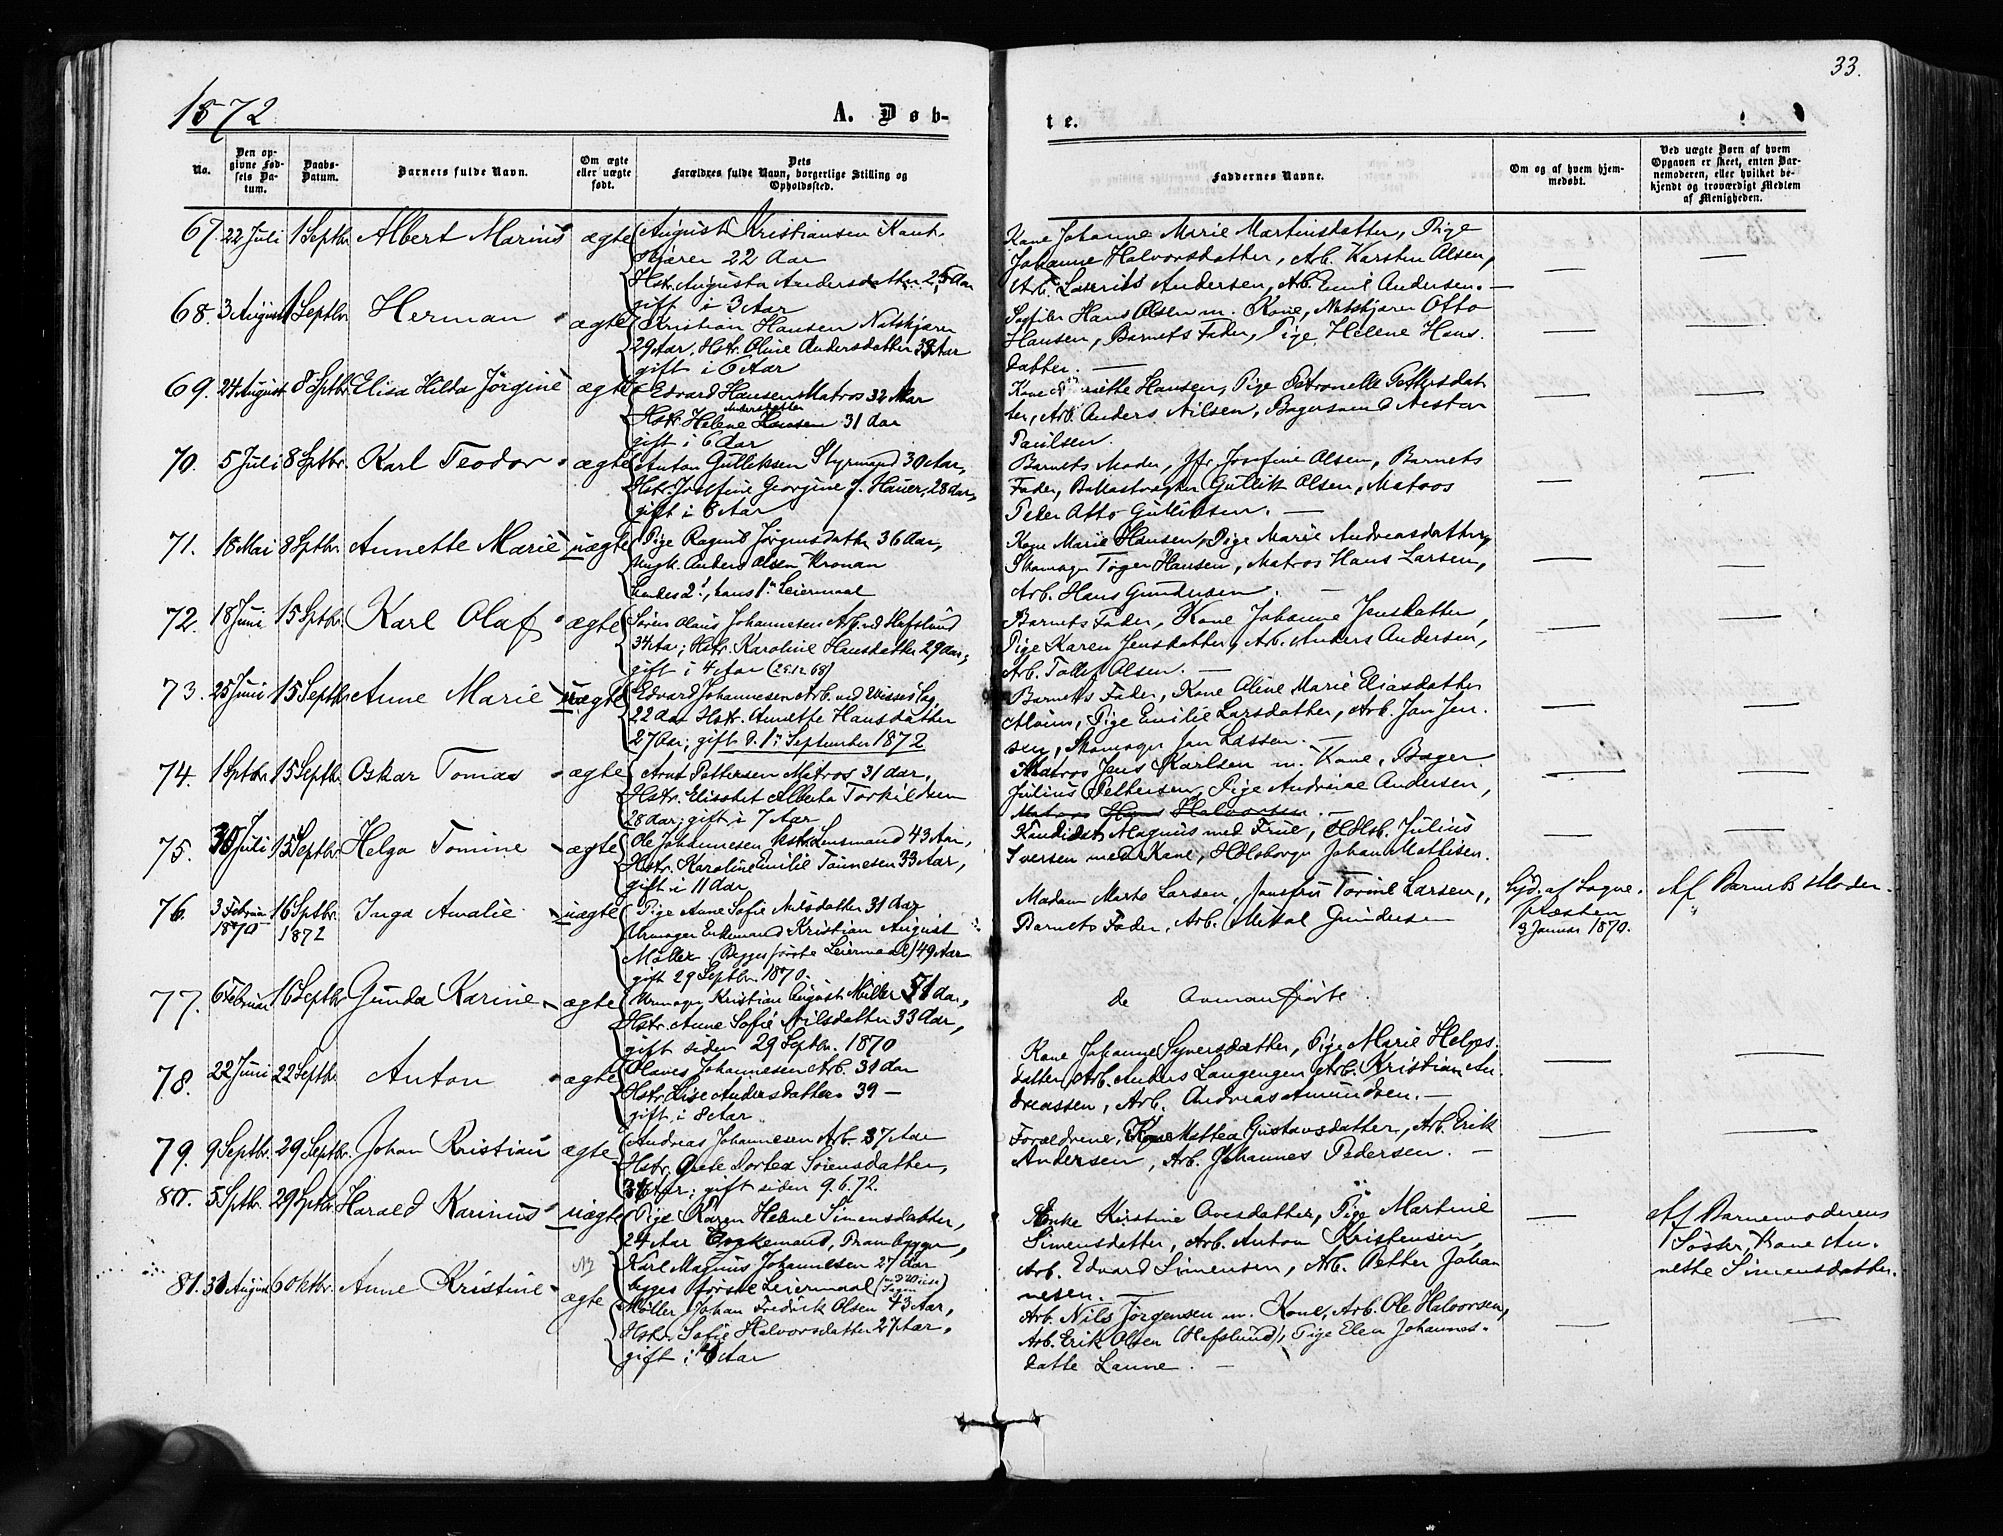 33.
1872
A. Døb-
te.
No.
Den opgivne Fødsels Datum.
Daabs-Datum.
Barnets fulde Navn.
Om ægte eller uægte født.
Dets Forældres fulde Navn, borgerlige Stilling og Opholdssted.
Faddernes Navne.
Om og af hvem hjemmedøbt.
Ved uægte Børn af hvem Opgaven er skeet, enten Barnemoderen, eller hvilket bekjendt og troværdigt Medlem af Menigheden.
67. 22 Juli 1 Septbr. Albert Marius ægte
August Kristiansen
22 Aar
Hstr. Augusta Andersdatter 25 Aar
gift i 3 Aar
Kone Johanne Marie Martinsdatter, Pige
Johanne Halvorsdatter, Arb. Karsten Olsen,
Arb. Laurits Andersen, Arb. Emil Andersen. —
68. 3 August 1 Septbr. Herman ægte
Kristian Hansen
29 Aar, Hstr. Oline Andersdatter Aar
gift i 6 Aar
Hans Olsen m. Kone, Otto
Hansen, Barnets Fader, Pige Helene Hans-
datter. —
69. 24 August 8 Septbr. Elisa Hilda Jørgine ægte
Edvard Hansen Matros 32 Aar
Hstr. Helene Andersdatter Hansen 31 Aar
gift i 6 Aar
Kone Hansen, Pige Petronelle Pettersdat
ter, Arb. Anders Nilsen, Bagersvend Nestor
Paulsen.
70. 5 Juli 8 Sptbr. Karl Teodor ægte
Anton Gulliksen Styrmand 30 Aar,
Hstr. Josefine Georgine f. Hauer, 28 Aar,
gift i 8 Aar
Barnets Moder, Jfr. Josefine Olsen, Barnets
Fader, Gullik Olsen, Matros
Peder Otto Gulliksen. —
71. 18 Mai 8 Sptbr. Annette Marie uægte
Pige Ragnil Jørgensdatter 36 Aar,
Ungk. Anders Olsen Kronan
hendes 2., hans 1. Leiermaal
Kone Marie Hansen, Pige Marie Andreasdatter,
Skomager Tøger Hansen, Matros Hans Larsen,
Arb. Hans Gundersen. —
72. 18 Juni 15 Sptbr. Karl Olaf ægte
Søren Olaus Johannesen Arb. ved Hafslund
34 Aar; Hstr. Karoline Hansdatter 29 Aar;
gift i 4 Aar (26.12.68)
Barnets Fader, Kone Johanne Jensdatter,
Pige Karen Jensdatter, Arb. Anders Andersen,
Arb. Tollef Olsen. —
73. 25 Juni 15 Septbr. Anne Marie uægte
Edvard Johannesen Arb. ved
22 Aar Hstr. Annette Hansdatter
27 Aar; gift d. 1. September 1872
Barnets Fader, Kone Oline Marie Eliasdatter
Pige Emilie Larsdatter, Arb. Jan Jen-
sen, Skomager Jan Lassen. —
74. 1 Sptbr. 15 Septbr. Oskar Tomas ægte
Arnt Pettersen Matros 31 Aar,
Hstr. Elisabet Alberta Torkildsen
28 Aar; gift i 7 Aar
Matros Jens Karlsen m. Kone, Bager
Julius Pettersen, Pige Andreine Andersen,
Matros Hans Halvorsen —
75. 30 Juli 15 Septbr. Helga Tomine ægte
Ole Johannesen Lensmand 43 Aar,
Hstr. Karoline Emilie Tønnesen 33 Aar,
gift i 11 Aar
Kandidat Magnus med Frue, Julius
Iversen med Kone, Johan Mathisen.
76. 3 Februar 1870 16 Sptbr. 1872 Inga Amalie uægte
Pige Anne Sofie Nilsdatter 31 Aar
Urmager Enkemand Kristian August
Møller (Begges første Leiermaal) 49 Aar
gift 29 Septbr. 1870.
Madam Marte Larsen, Jomfru Torine Larsen,
Barnets Fader, Arb. Mikal Gundersen
Af Barnets Moder.
præsten
9 Januar 1870.
77. 6 Februar 16 Septbr. Gunda Karine ægte
Urmager Kristian August Møller 51 Aar,
Hstr. Anne Sofie Nilsdatter 33 Aar,
gift siden 29 Septbr. 1870
de anførte.
78. 22 Juni 22 Septbr. Anton ægte
Johannesen Arb. 31 Aar
Hstr. Lise Andersdatter 39 —
gift i 8 Aar
Kone Johanne Syversdatter, Pige Marie Helges-
datter, Arb. Anders Langengen, Arb. Kristian An-
dreassen, Arb. Andreas Amundsen. —
79. 9 Septbr. 29 Septbr. Johan Kristian ægte
Andreas Johannesen Arb. 37 Aar
Hstr. Grete Dortea Sørensdatter,
Aar; gift siden 9.6.72.
Forældrene, Kone Mattea Gustavsdatter, Arb. Erik
Andersen, Arb. Johannes Pedersen. —
80. 5 Sptbr. 29 Sptbr. Harald Karinus uægte
Pige Karen Helene Simensdatter,
24 Aar Enkemand, Prambygger,
Karl Magnus Johannesen 27 Aar
begges første Leiermaal
Enke Kirstine Ovesdatter, Pige Martine
Simensdatter, Arb. Anton Kristensen,
Arb. Edvard Simensen, Arb. Petter Johan
nesen. —
Af Barnemoderens
Søster, Kone An-
nette Simensdatter.
81. 31 August 6 Oktbr. Anne Kristine NB ægte
Møller Johan Fredrik Olsen 43 Aar,
Hstr. Sofie Halvorsdatter 27 Aar,
gift i Aar
Arb. Nils Jørgensen m. Kone, Arb. Ole Halvorsen,
Arb. Erik Olsen (Hafslund), Pige Elen Johannes-
datter Lanne. —